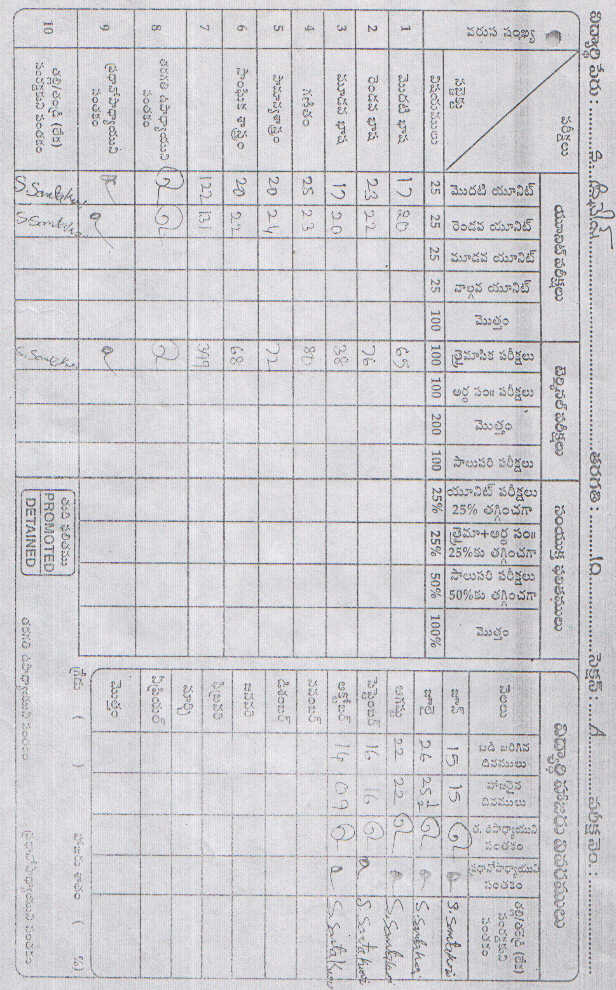 విద్యార్థి పేరు : తరగతి : 10 సెక్షన్ : A పరీక్ష నెం. :
వరుస సంఖ్య
పరీక్షలు
సబ్జెక్టు
విషయములు
యూనిట్ పరీక్షలు
మొదటి యూనిట్ 25
రెండవ యూనిట్ 25
మూడవ యూనిట్ 25
నాల్గవ యూనిట్ 25
మొత్తం 100
టెర్మినల్ పరీక్షలు
త్రైమాసిక పరీక్షలు 100
అర్ధ సం॥ పరీక్షలు 100
మొత్తం 200
సాలుసరి పరీక్షలు 100
సంయుక్త ఫలితములు
యూనిట్ పరీక్షలు 25% తగ్గించగా 25%
త్రైమా+అర్ధ సం॥ 25%కు తగ్గించగా 25%
సాలుసరి పరీక్షలు 50%కు తగ్గించగా 50%
మొత్తం 100%
1 మొదటి భాష 17 20 65
2 రెండవ భాష 23 22 76
3 మూడవ భాష 17 20 38
4 గణితం 25 23 80
5 సామాన్యశాస్త్రం 20 24 72
6 సాంఘిక శాస్త్రం 20 22 68
7 122 131 399
8 తరగతి ఉపాధ్యాయుని సంతకం
9 ప్రధానోపాధ్యాయుని సంతకం
10 తల్లి/తండ్రి (లేక) సంరక్షకుని సంతకం
తుది ఫలితము
PROMOTED
DETAINED
తరగతి ఉపాధ్యాయుని సంతకం
ప్రధానోపాధ్యాయుని సంతకం
విద్యార్థి హాజరు వివరములు
నెలలు
బడి జరిగిన దినములు
హాజరైన దినములు
త. ఉపాధ్యాయుని సంతకం
ప్రధానోపాధ్యాయుని సంతకం
తల్లి/తండ్రి (లేక) సంరక్షకుని సంతకం
జూన్ 15 15
జూలై 26 25½
ఆగష్టు 22 22
సెప్టెంబర్ 16 16
అక్టోబర్ 14 09
నవంబర్
డిశంబర్
జనవరి
ఫిబ్రవరి
మార్చి
ఏప్రియల్
మొత్తం
గ్రేడు ( ) హాజరు శాతం ( %)